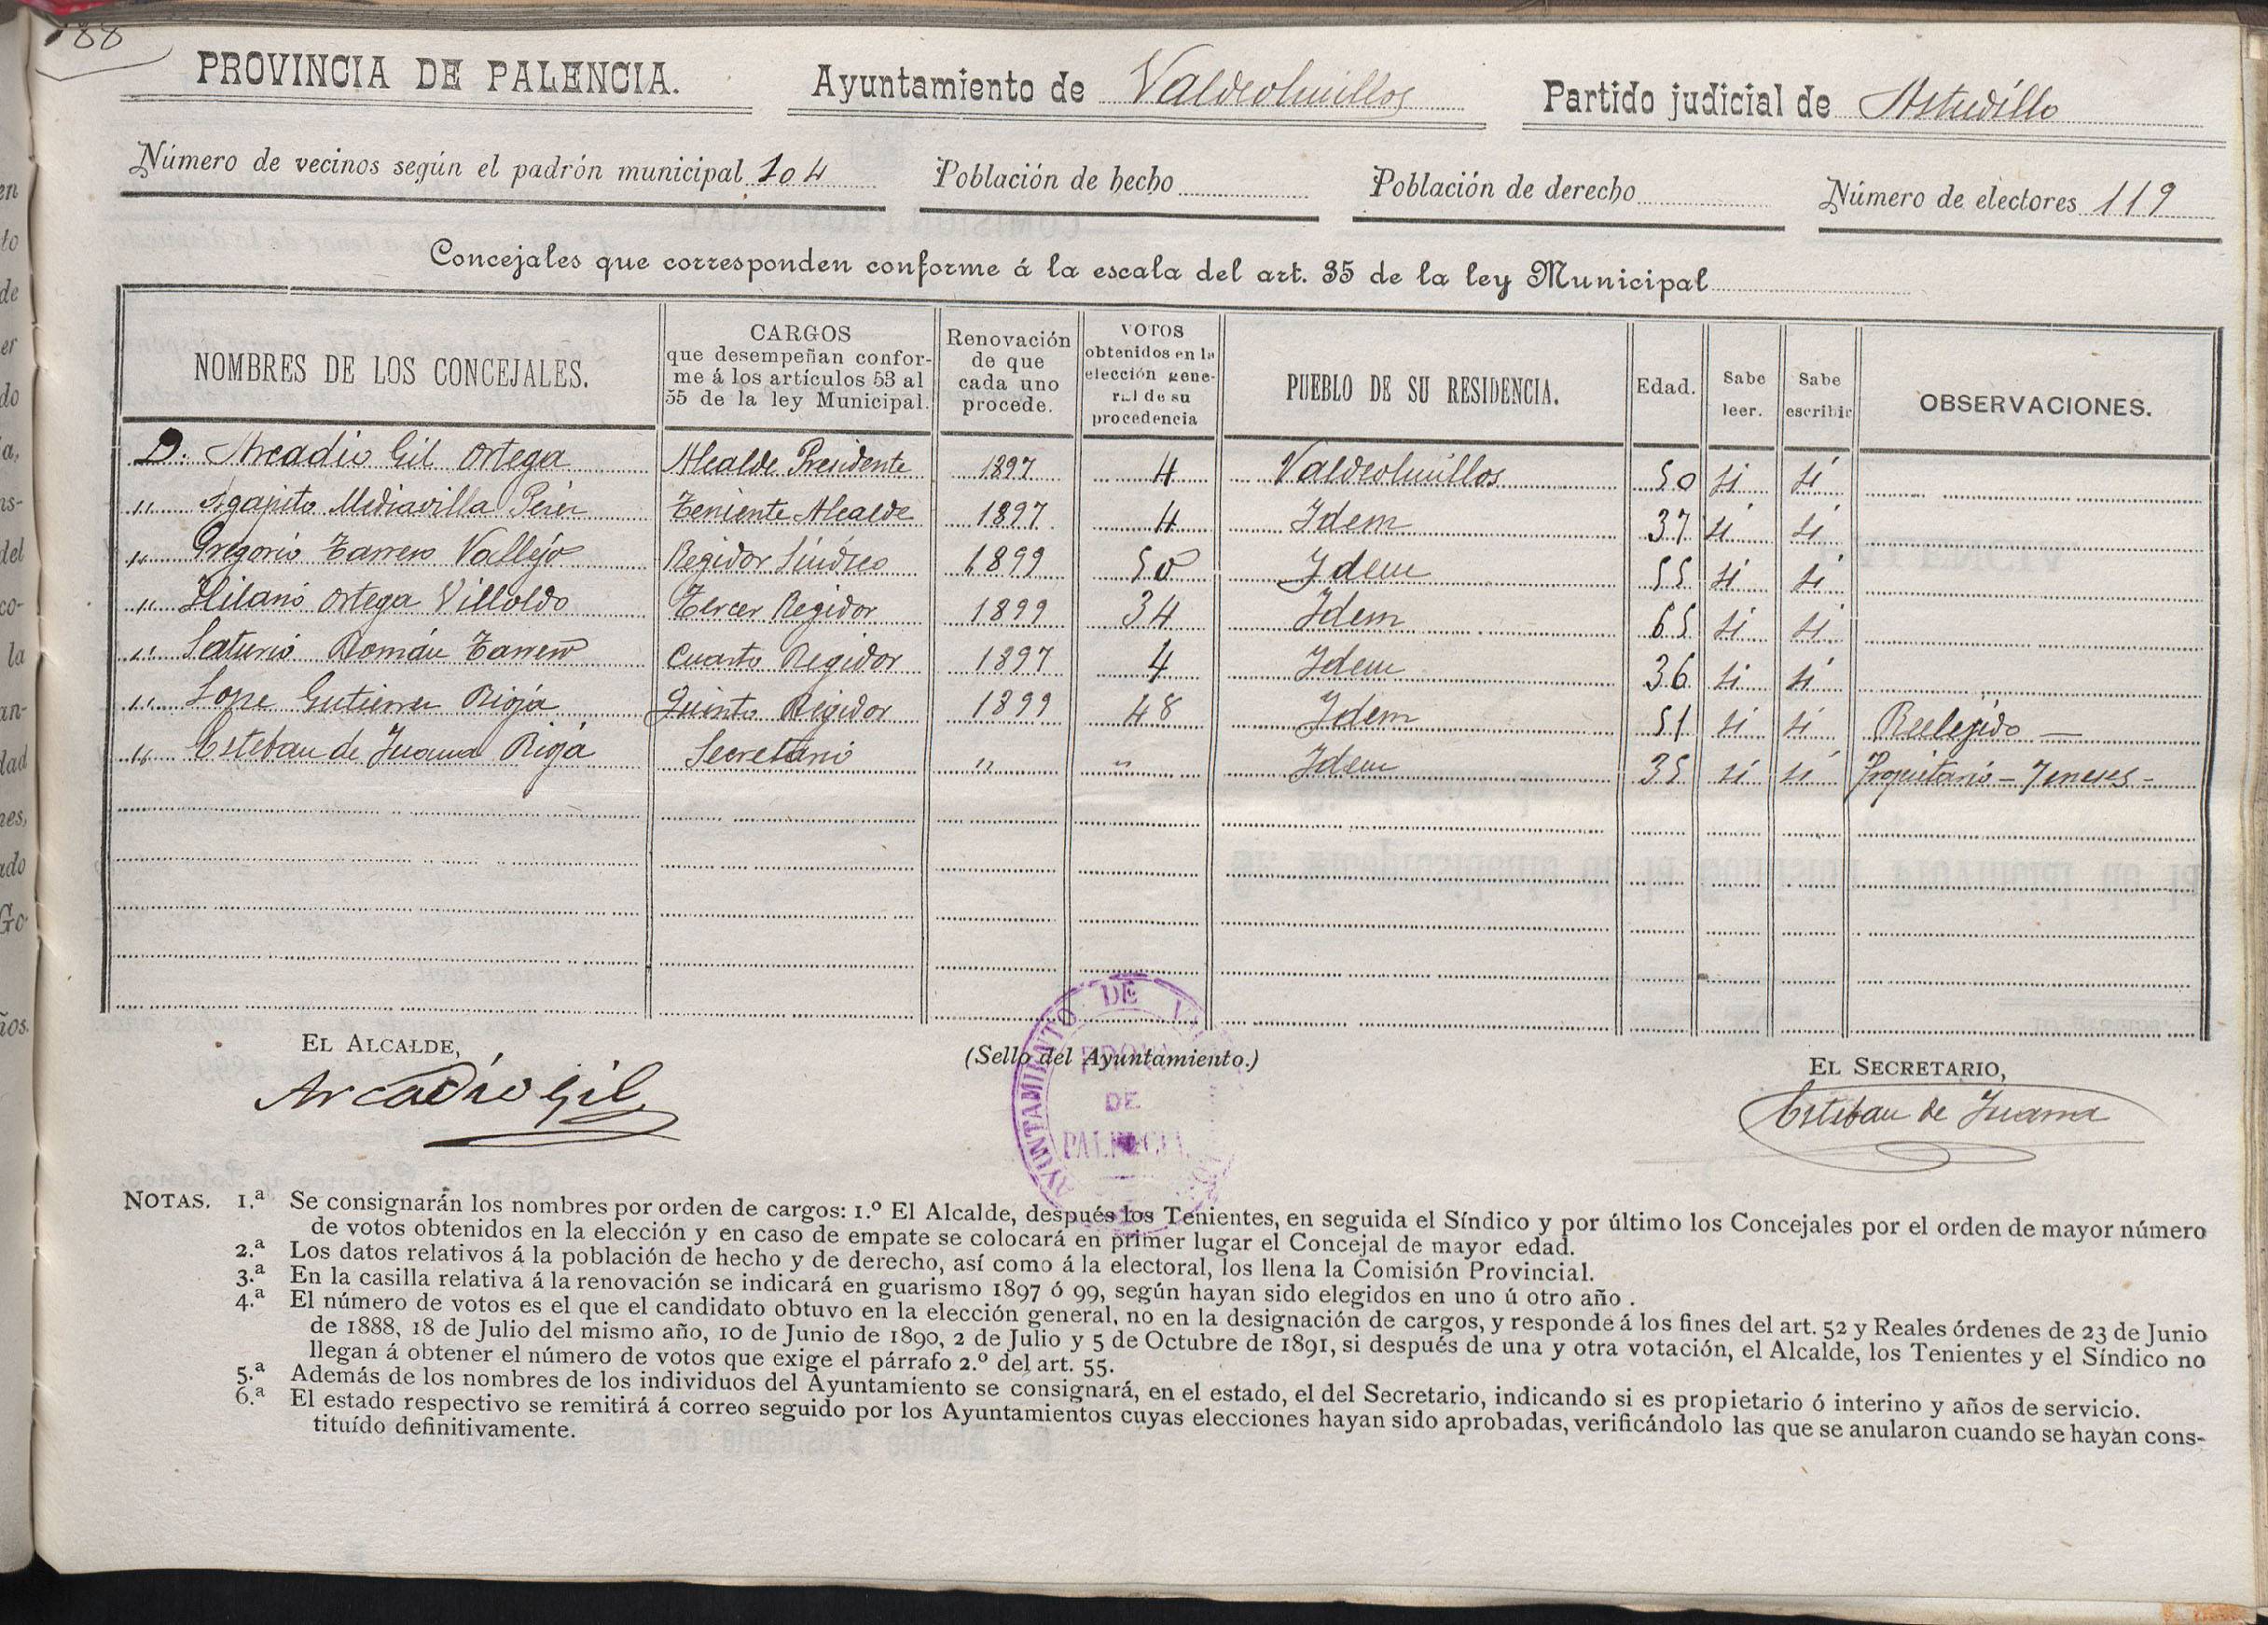 188
PROVINCIA DE PALENCIA. Ayuntamiento de Valdeolmillos Partido judicial de Astudillo
Número de vecinos según el padrón municipal 104 Población de hecho Población de derecho Número de electores 119
Concejales que corresponden conforme á la escala del art. 35 de la ley Municipal
NOMBRES DE LOS CONCEJALES.
CARGOS
que desempeñan confor-
me á los artículos 53 al
55 de la ley Municipal.
Renovación
de que
cada uno
procede.
VOTOS
obtenidos en la
elección gene-
ral de su
procedencia
PUEBLO DE SU RESIDENCIA.
Edad.
Sabe
leer.
Sabe
escribir
OBSERVACIONES.
D. Arcadio Gil Ortega Alcalde Presidente 1897 4 Valdeolmillos 50 si si
" Agapito Mediavilla Perez Teniente Alcalde 1897 4 Idem 37 si si
" Gregorio Tarrero Vallejo Regidor Síndico 1899 50 Idem 55 si si
" Hilario Ortega Villoldo Tercer Regidor 1899 34 Idem 65 si si
" Saturio Román Tarrero Cuarto Regidor 1897 4 Idem 36 si si
" Lope Gutierrez Rioja Quinto Regidor 1899 48 Idem 51 si si Reelejido —
" Esteban de Juana Rioja Secretario " " Idem 35 si si Propietario — 7 meses —
EL ALCALDE, (Sello del Ayuntamiento.) EL SECRETARIO,
Arcadio Gil Esteban de Juana
AYUNTAMIENTO DE
DE
PALENCIA
NOTAS. 1.ª Se consignarán los nombres por orden de cargos: 1.º El Alcalde, después los Tenientes, en seguida el Síndico y por último los Concejales por el orden de mayor número
de votos obtenidos en la elección y en caso de empate se colocará en primer lugar el Concejal de mayor edad.
2.ª Los datos relativos á la población de hecho y de derecho, así como á la electoral, los llena la Comisión Provincial.
3.ª En la casilla relativa á la renovación se indicará en guarismo 1897 ó 99, según hayan sido elegidos en uno ú otro año.
4.ª El número de votos es el que el candidato obtuvo en la elección general, no en la designación de cargos, y responde á los fines del art. 52 y Reales órdenes de 23 de Junio
de 1888, 18 de Julio del mismo año, 10 de Junio de 1890, 2 de Julio y 5 de Octubre de 1891, si después de una y otra votación, el Alcalde, los Tenientes y el Síndico no
llegan á obtener el número de votos que exige el párrafo 2.º del art. 55.
5.ª Además de los nombres de los individuos del Ayuntamiento se consignará, en el estado, el del Secretario, indicando si es propietario ó interino y años de servicio.
6.ª El estado respectivo se remitirá á correo seguido por los Ayuntamientos cuyas elecciones hayan sido aprobadas, verificándolo las que se anularon cuando se hayan cons-
tituído definitivamente.